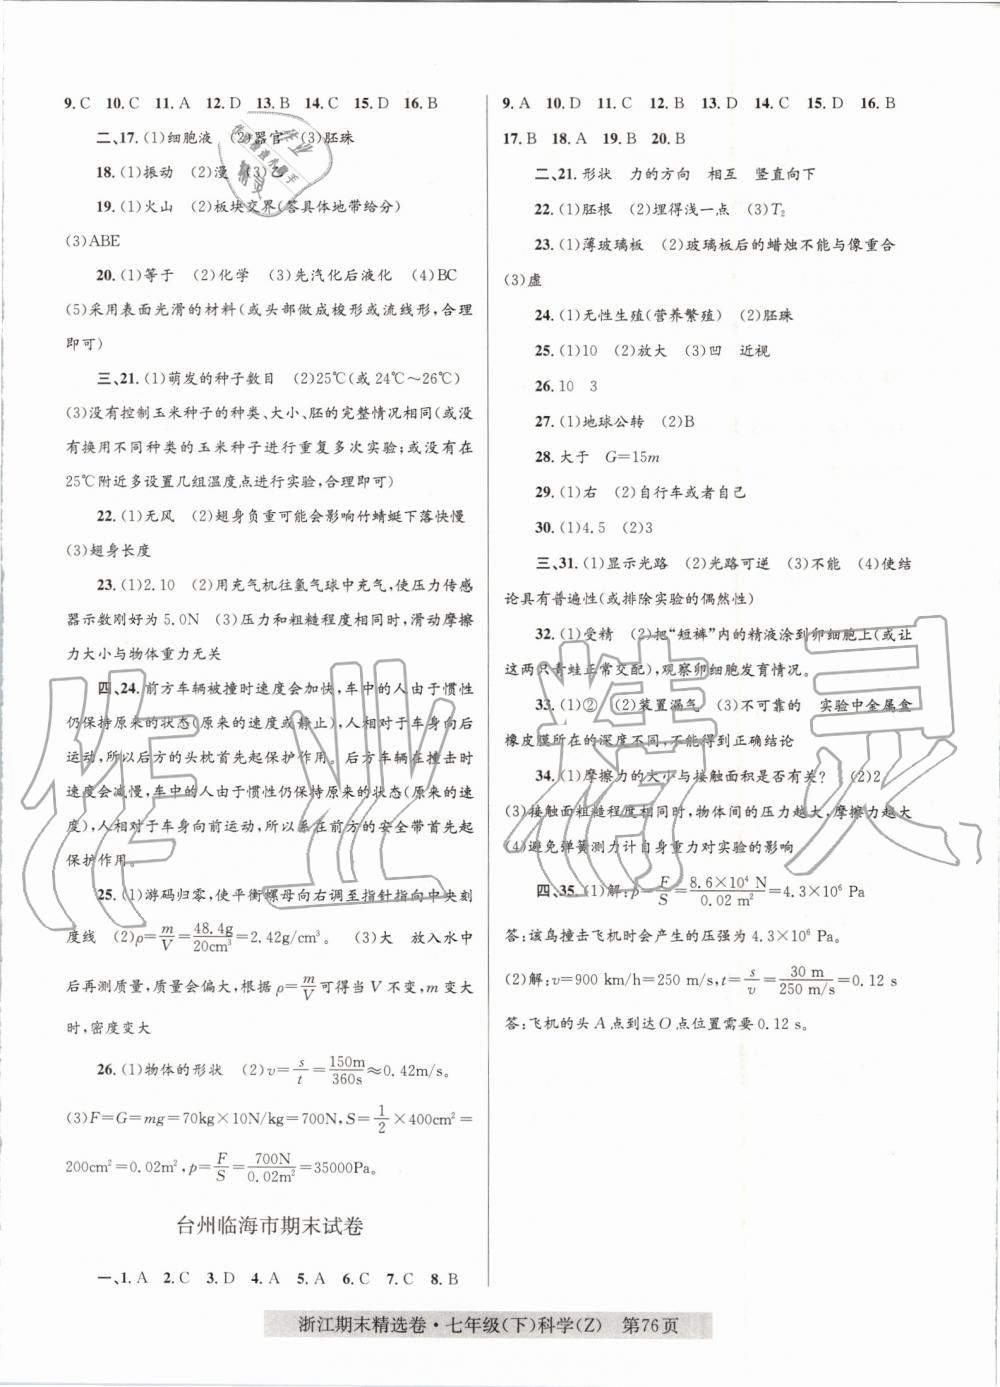 9. C 10. C 11. A 12. D 13. B 14. C 15. D 16. B
二、17. (1)细胞液 (2)器官 (3)胚珠
18. (1)振动 (2)漫 (3)乙
19. (1)火山 (2)板块交界(答具体地带给分)
(3)ABE
20. (1)等于 (2)化学 (3)先汽化后液化 (4)BC
(5)采用表面光滑的材料(或头部做成梭形或流线形,合理
即可)
三、21. (1)萌发的种子数目 (2)25℃(或 24℃~26℃)
(3)没有控制玉米种子的种类、大小、胚的完整情况相同(或
没有换用不同种类的玉米种子进行重复多次实验;或没有在
25℃附近多设置几组温度点进行实验,合理即可)
22. (1)无风 (2)翅身负重可能会影响竹蜻蜓下落快慢
(3)翅身长度
23. (1)2.10 (2)用充气机往氢气球中充气,使压力传感
器示数刚好为 5.0N (3)压力和粗糙程度相同时,滑动摩擦
力大小与物体重力无关
四、24. 前方车辆被撞时速度会加快,车中的人由于惯性
仍保持原来的状态(原来的速度或静止),人相对于车身向后
运动,所以后方的头枕首先起保护作用。后方车辆在撞击时
速度会减慢,车中的人由于惯性仍保持原来的状态(原来的速
度),人相对于车身向前运动,所以系在前方的安全带首先起
保护作用。
25. (1)游码归零,使平衡螺母向右调至指针指向中央刻
度线 (2)ρ=m/V=48.4g/20cm³=2.42g/cm³。 (3)大 放入水中
后再测质量,质量会偏大,根据ρ=m/V可得当 V 不变,m 变大
时,密度变大
26. (1)物体的形状 (2)v=s/t=150m/360s≈0.42m/s。
(3)F=G=mg=70kg×10N/kg=700N,S=1/2×400cm²=
200cm²=0.02m²,p=F/S=700N/0.02m²=35000Pa。
台州临海市期末试卷
一、1. A 2. C 3. D 4. A 5. A 6. C 7. C 8. B
9. A 10. D 11. C 12. B 13. D 14. C 15. D 16. B
17. B 18. A 19. B 20. B
二、21. 形状 力的方向 相互 竖直向下
22. (1)胚根 (2)埋得浅一点 (3)T₂
23. (1)薄玻璃板 (2)玻璃板后的蜡烛不能与像重合
(3)虚
24. (1)无性生殖(营养繁殖) (2)胚珠
25. (1)10 (2)放大 (3)凹 近视
26. 10 3
27. (1)地球公转 (2)B
28. 大于 G=15m
29. (1)右 (2)自行车或者自己
30. (1)4.5 (2)3
三、31. (1)显示光路 (2)光路可逆 (3)不能 (4)使结
论具有普遍性(或排除实验的偶然性)
32. (1)受精 (2)把“短裤”内的精液涂到卵细胞上(或让
这两只青蛙正常交配),观察卵细胞发育情况。
33. (1)② (2)装置漏气 (3)不可靠的 实验中金属盒
橡皮膜所在的深度不同,不能得到正确结论
34. (1)摩擦力的大小与接触面积是否有关? (2)2
(3)接触面粗糙程度相同时,物体间的压力越大,摩擦力越大
(4)避免弹簧测力计自身重力对实验的影响
四、35. (1)解:p=F/S=8.6×10⁴ N/0.02 m²=4.3×10⁶ Pa
答:该鸟撞击飞机时会产生的压强为 4.3×10⁶ Pa。
(2)解:v=900 km/h=250 m/s,t=s/v=30 m/250 m/s=0.12 s
答:飞机的头 A 点到达 O 点位置需要 0.12 s。
浙江期末精选卷·七年级(下)科学(Z) 第76页
作业精灵